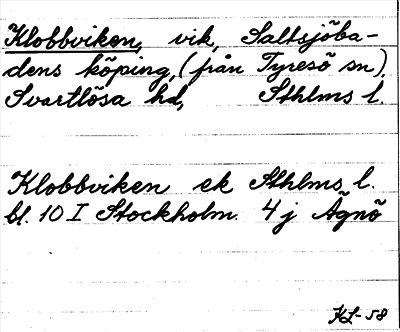 Klobbviken, vik, Saltsjöba-
dens köping, (från Tyresö sn).
Svartlösa hd, Sthlms l.
Klobbviken ek Sthlms l.
bl. 10 I Stockholm 4 j Ägnö
KL-58